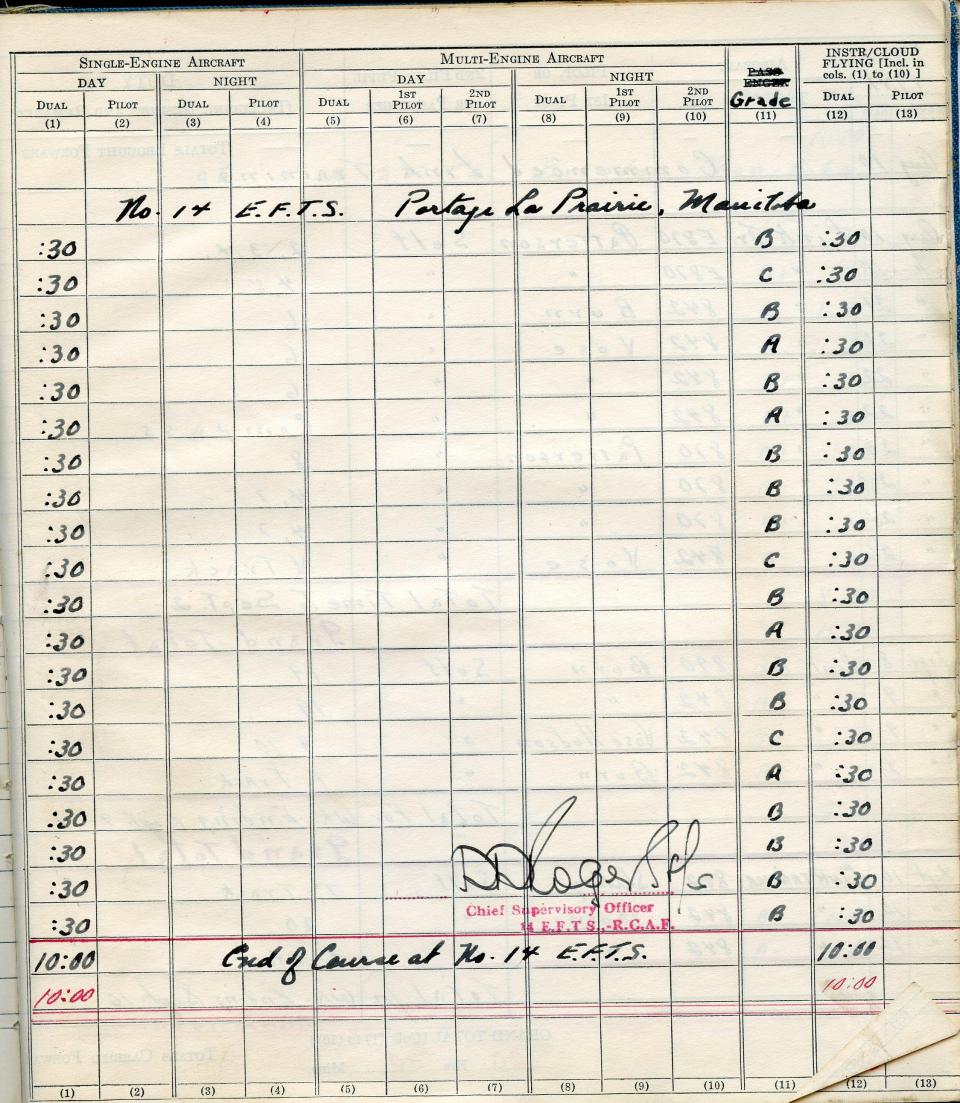 SINGLE-ENGINE AIRCRAFT MULTI-ENGINE AIRCRAFT PASSENGER Grade INSTR/CLOUD FLYING [Incl. in cols. (1) to (10) ]
DAY NIGHT DAY NIGHT
DUAL PILOT DUAL PILOT DUAL 1ST PILOT 2ND PILOT DUAL 1ST PILOT 2ND PILOT DUAL PILOT
(1) (2) (3) (4) (5) (6) (7) (8) (9) (10) (11) (12) (13)
No. 14 E.F.T.S. Portage La Prairie, Manitoba
:30 B :30
:30 C :30
:30 B :30
:30 A :30
:30 B :30
:30 A :30
:30 B :30
:30 B :30
:30 B :30
:30 C :30
:30 B :30
:30 A :30
:30 B :30
:30 B :30
:30 C :30
:30 A :30
:30 B :30
:30 B :30
:30 B :30
:30 B :30
Chief Supervisory Officer
14 E.F.T S.,-R.C.A.F.
10:00 End of Course at No. 14 E.F.T.S. 10:00
10:00 10:00
(1) (2) (3) (4) (5) (6) (7) (8) (9) (10) (11) (12) (13)